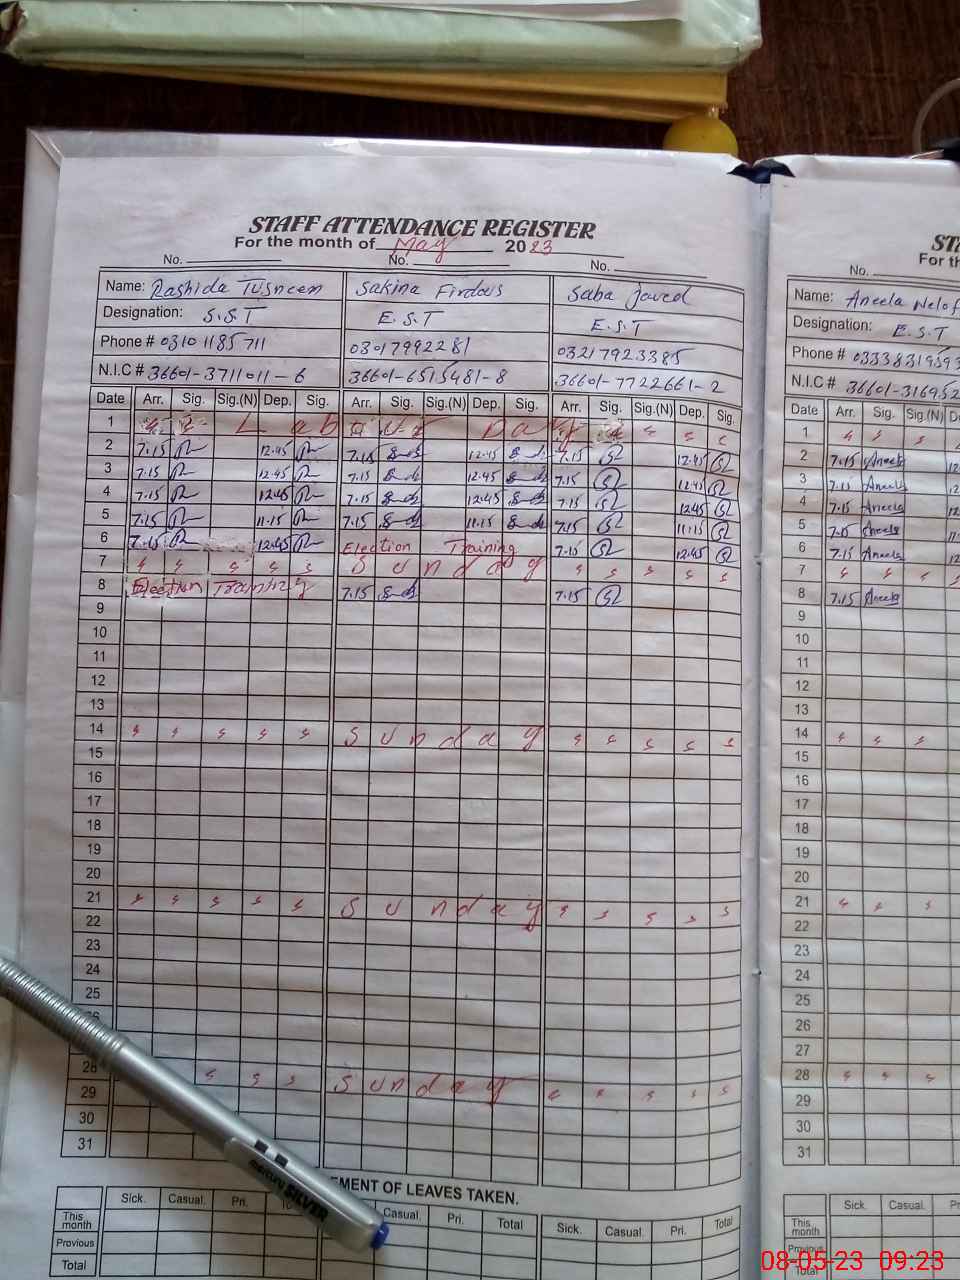 STAFF ATTENDANCE REGISTER
For the month of May 2023
No. No. No.
Name: Rashida Tusneem Sakina Firdous Saba Javed
Designation: S.S.T E.S.T E.S.T
Phone # 03101185711 03017992281 03217923385
N.I.C # 36601-3711011-6 36601-6515481-8 36601-7722661-2
Date Arr. Sig. Sig.(N) Dep. Sig. Arr. Sig. Sig.(N) Dep. Sig. Arr. Sig. Sig.(N) Dep. Sig.
1 Labour Day
2 7.15 12.45 7.15 12.45 7.15 12.45
3 7.15 12.45 7.15 12.45 7.15 12.45
4 7.15 12.45 7.15 12.45 7.15 12.45
5 7.15 11.15 7.15 11.15 7.15 11.15
6 7.15 12.45 Election Training 7.15 12.45
7 Sunday
8 Election Training 7.15 7.15
9
10
11
12
13
14 Sunday
15
16
17
18
19
20
21 Sunday
22
23
24
25
28 Sunday
29
30
31
EMENT OF LEAVES TAKEN.
Sick. Casual. Pri. Casual. Pri. Total Sick. Casual. Pri. Total
This month
Previous
Total
STA
For th
No.
Name: Aneela Nelof
Designation: E.S.T
Phone # 0333831959
N.I.C # 36601-316952
Date Arr. Sig. Sig.(N) D
1
2 7.15 Aneela 12
3 7.15 Aneela 12
4 7.15 Aneela 12
5 7.15 Aneela 11
6 7.15 Aneela 12
7
8 7.15 Aneela
9
10
11
12
13
14
15
16
17
18
19
20
21
22
23
24
25
26
27
28
29
30
31
Sick. Casual. Pr
This month
Previous
Total
SILVER
08-05-23 09:23